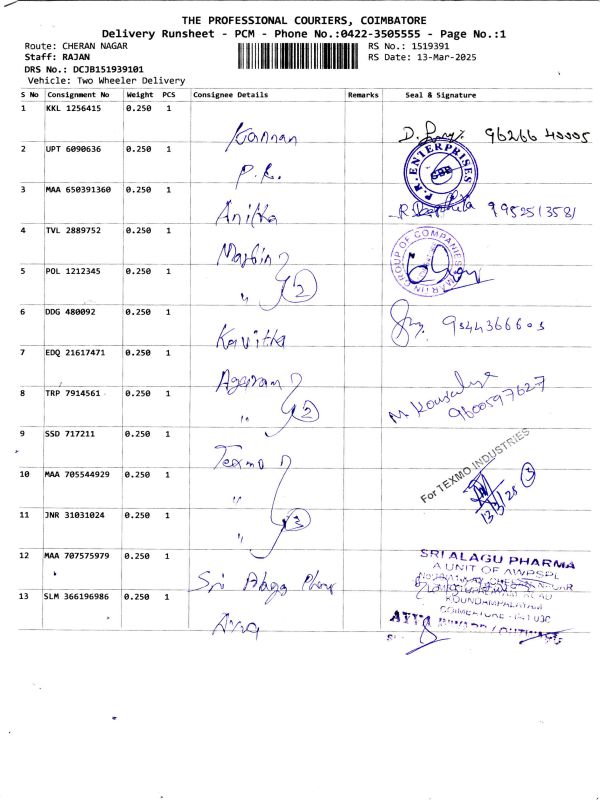 THE PROFESSIONAL COURIERS, COIMBATORE
Delivery Runsheet - PCM - Phone No.:0422-3505555 - Page No.:1
Route: CHERAN NAGAR RS No.: 1519391
Staff: RAJAN RS Date: 13-Mar-2025
DRS No.: DCJB151939101
Vehicle: Two Wheeler Delivery
S No Consignment No Weight PCS Consignee Details Remarks Seal & Signature
1 KKL 1256415 0.250 1
Kannan 96266 40005
2 UPT 6090636 0.250 1
P.R. P.R. ENTERPRISES CBE
3 MAA 650391360 0.250 1
Anitha 9952513581
4 TVL 2889752 0.250 1
Martin MARTIN GROUP OF COMPANIES
5 POL 1212345 0.250 1
" 2
6 DDG 480092 0.250 1
Kavitha 9344366603
7 EDQ 21617471 0.250 1
Agaram
8 TRP 7914561 0.250 1
" 2 M. Kousalya 9600597627
9 SSD 717211 0.250 1
Texmo For TEXMO INDUSTRIES
10 MAA 705544929 0.250 1
" 3
13/3/25
11 JNR 31031024 0.250 1
" 3
12 MAA 707575979 0.250 1
Sri Alagu Pharma SRI ALAGU PHARMA
A UNIT OF AWPSPL
KOUNDAMPALAYAM
COIMBATORE - 641 030
13 SLM 366196986 0.250 1